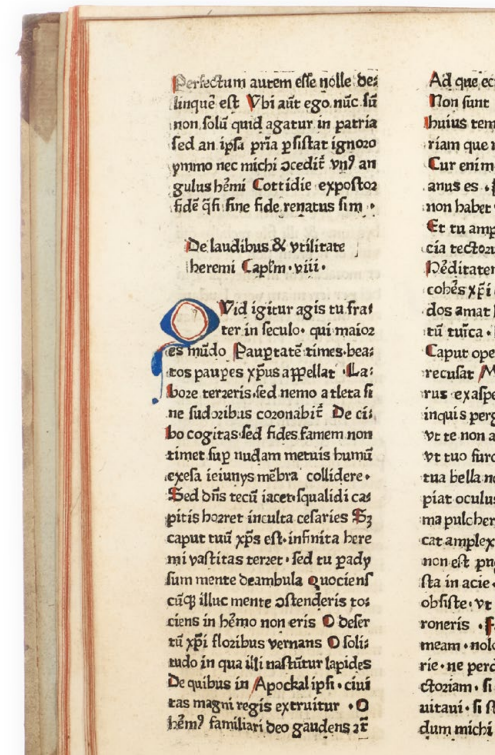 Perfectum autem esse nolle de:
linquẽ est Vbi aũt ego nũc sũ
non solũ quid agatur in patria
sed an ipsa pria ꝑsistat ignoro
ymmo nec michi ↄcedit̃ vnꝰ an
gulus hẽmi Cottidie expostor
fidẽ q̃si sine fide renatus sim ·
De laudibus & vtilitate
heremi Caplm · viii ·
QVid igitur agis tu fra:
ter in seculo · qui maior
es mũdo Pauꝑtatẽ times · bea:
tos pauꝑes xp̃us appellat La:
bore terreris · sed nemo atleta si
ne sudoribus coronabit̃ De ci:
bo cogitas · sed fides famem non
timet suꝑ nudam metuis humũ
exesa ieiunys mẽbra collidere ·
Sed dñs tecũ iacet · squalidi ca:
pitis horret inculta cesaries Sꝫ
caput tuũ xp̃s est · infinita here
mi vastitas terret · sed tu pady
sum mente deambula Quociens
cũqꝫ illuc mente ↄscenderis to:
ciens in hẽmo non eris O deser
tũ xp̃i floribus vernans O soli:
tudo in qua illi nascũtur lapides
De quibus in Apockalipsi · ciui
tas magni regis extruitur · O
hẽmꝰ familiari deo gaudens
Ad que
Non sunt
huius tem
riam que
Cur enim
anus es ·
non habet
Et tu amp
cia tectoru
Mẽditater
cohẽs xp̃i
dos amat
tũ tuĩca ·
Caput ope
recusat
rus · exaspe
inquis perg
vt te non a
vt tuo furo
tua bella n
piat oculus
ma pulcher
cat amplex
non est pug
sta in acie ·
obsiste · vt
roneris ·
meam · nolo
rie · ne perd
ctoriam · si
uitaui · si
dum michi